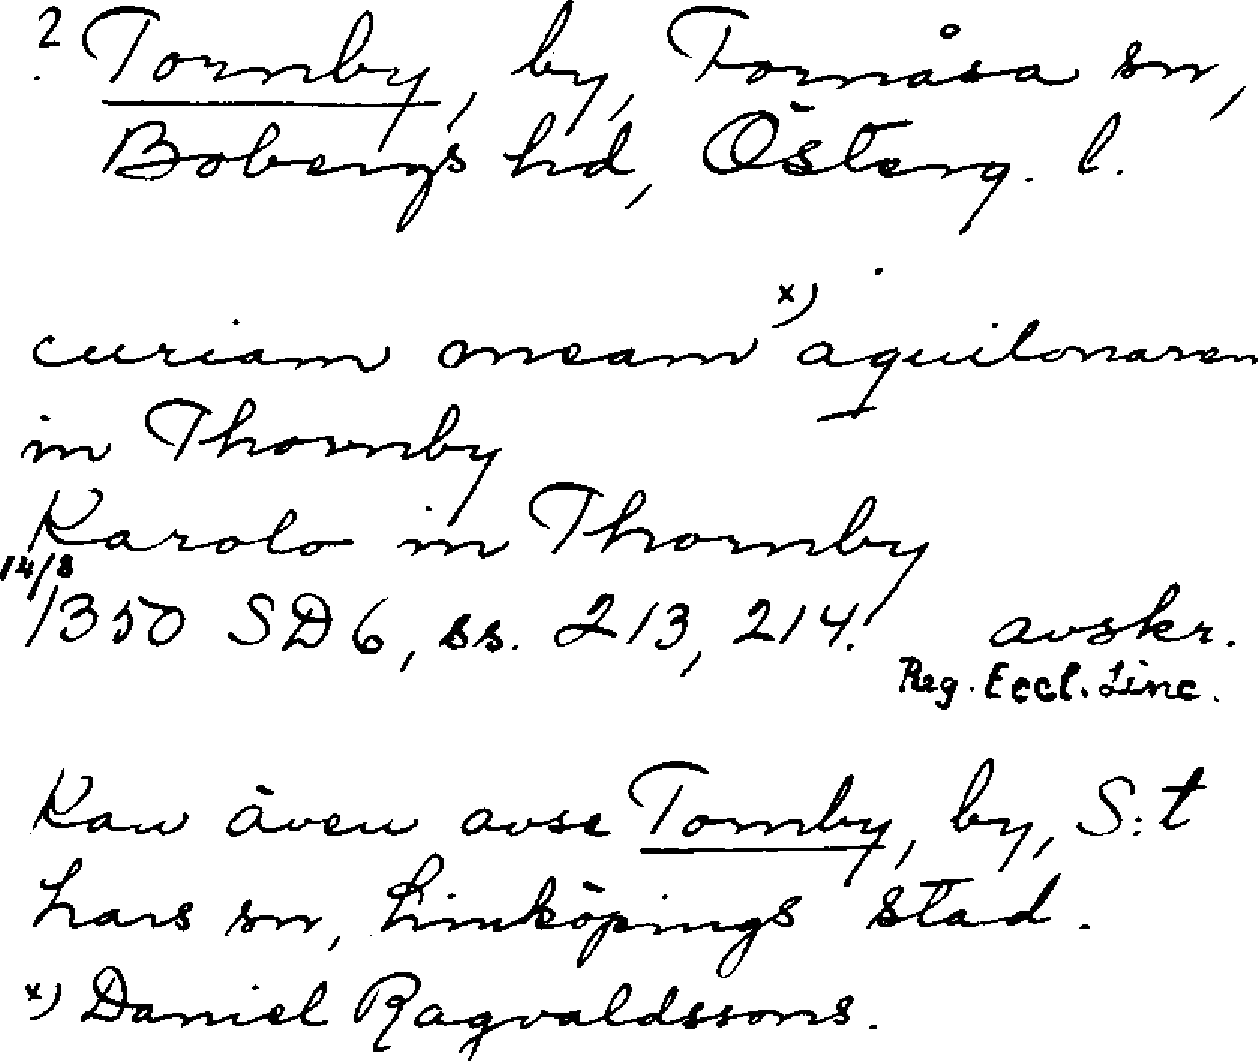 ? Tornby, by, Fornåsa sn,
Bobergs hd, Österg. l.
curiam meam x) aquilonaren
in Thornby
Karolo in Thornby
14/8
1350 SD 6, ss. 213, 214. avskr.
Reg. Eccl. Linc.
Kan även avse Tornby, by, S:t
Lars sn, Linköpings stad.
x) Daniel Ragvaldssons.